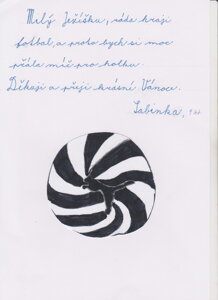 Milý Ježíšku, ráda hraji
fotbal, a proto bych si moc
přála míč pro holku.
Děkuji a přeji krásné Vánoce.
Sabinka, 9 let